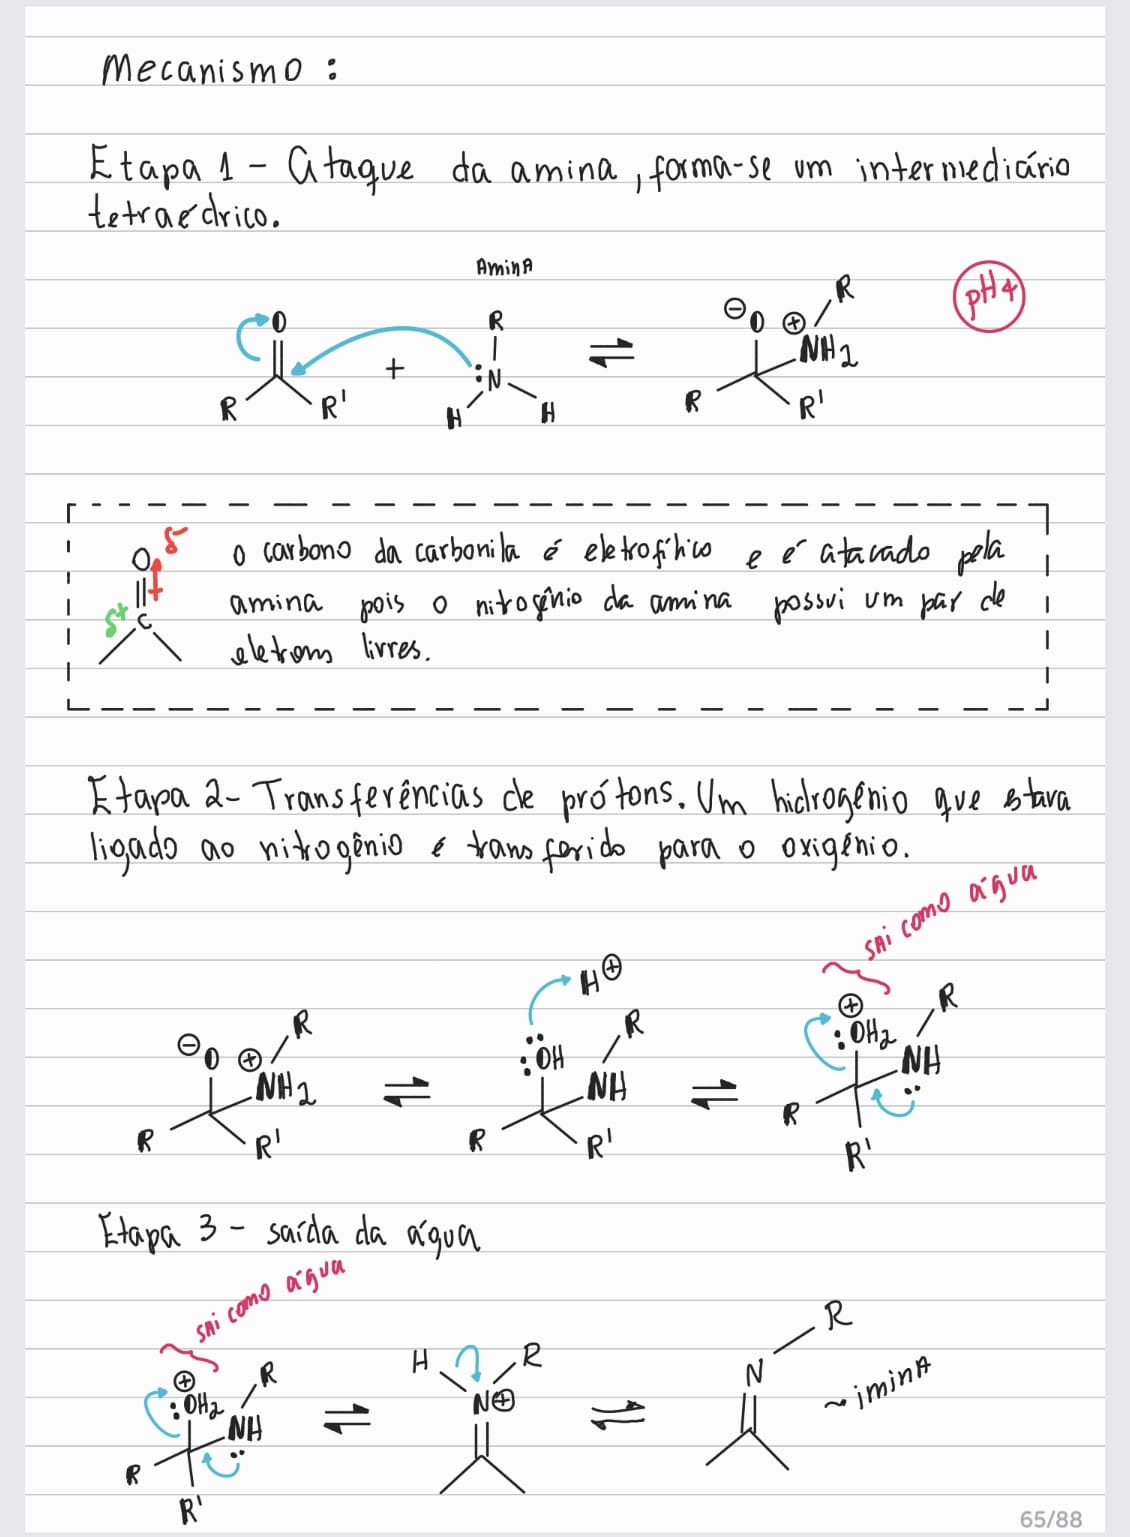 Mecanismo:
Etapa 1 - Ataque da amina, forma-se um intermediário
tetraédrico.
Amina
pH 4
O
R
R'
+
R
:N
H
H
⇌
⊖
O
⊕
R
NH2
R
R'
O δ-
δ+ C
o carbono da carbonila é eletrofílico e é atacado pela
amina pois o nitrogênio da amina possui um par de
eletrons livres.
Etapa 2- Transferências de prótons. Um hidrogênio que estava
ligado ao nitrogênio é transferido para o oxigênio.
sai como água
⊖
O
⊕
R
NH2
R
R'
⇌
H⊕
:OH
R
NH
R
R'
⇌
⊕
:OH2
R
NH
R
R'
Etapa 3 - saída da água
sai como água
⊕
:OH2
R
NH
R
R'
⇌
H
R
N⊕
⇌
R
N
~ imina
65/88